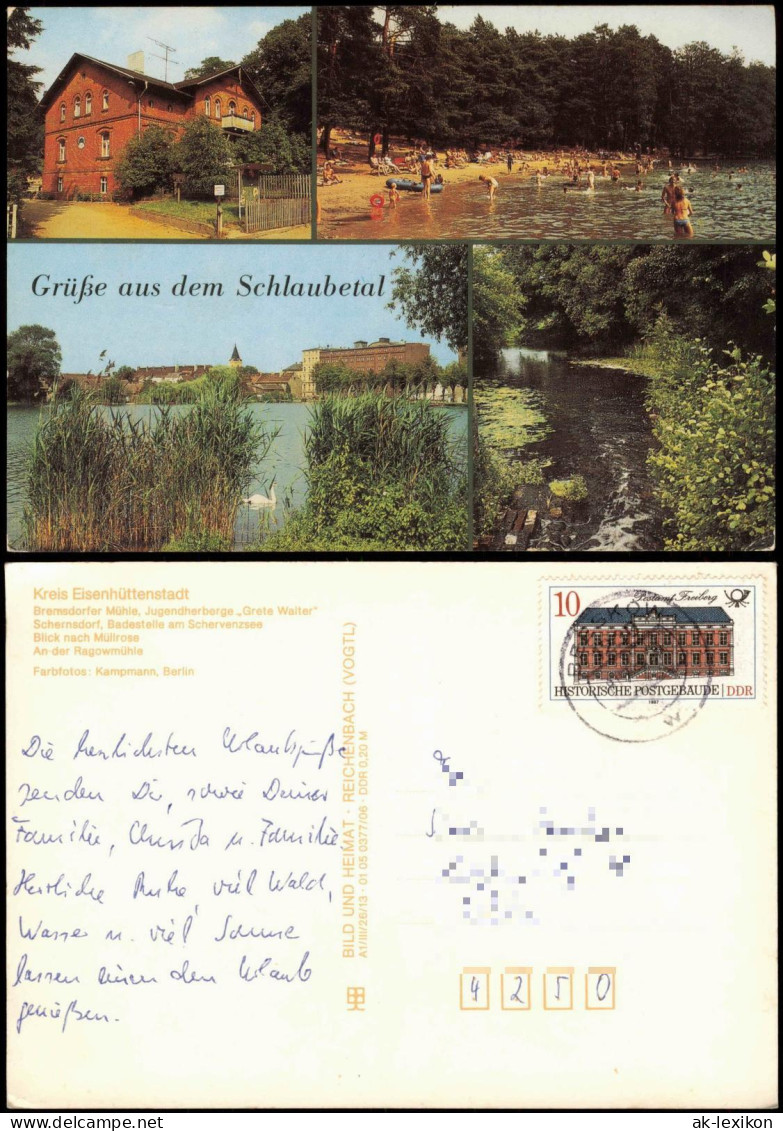 Grüße aus dem Schlaubetal
Kreis Eisenhüttenstadt
Bremsdorfer Mühle, Jugendherberge „Grete Walter"
Schernsdorf, Badestelle am Schervenzsee
Blick nach Müllrose
An der Ragowmühle
Farbfotos: Kampmann, Berlin
BILD UND HEIMAT · REICHENBACH (VOGTL)
A1/III/26/13 · 01 05 0377/06 · DDR 0,20 M
10
Postamt Freiberg
HISTORISCHE POSTGEBÄUDE | DDR
Die herzlichsten Urlaubsgrüße
senden Dir, sowie Deiner
Familie, Christa u. Familie.
Herrliche Ruhe, viel Wald,
Wasser u. viel Sonne
lassen einen den Urlaub
genießen.
4 2 5 0
www.ansichtskarten-lexikon.de
ak-lexikon